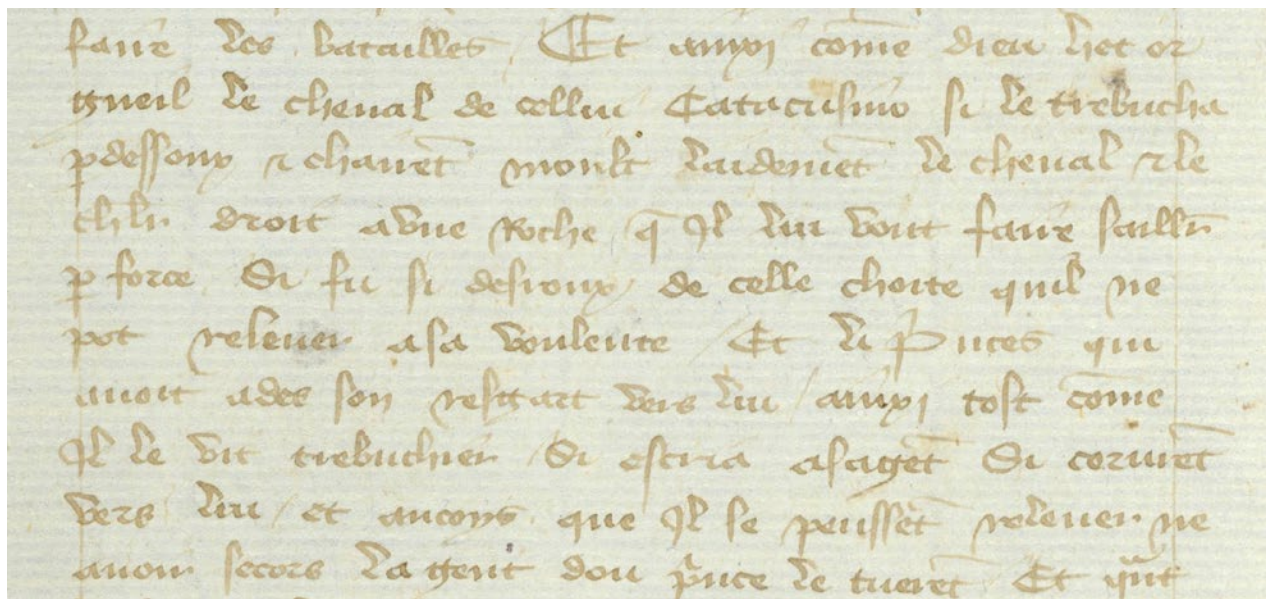 faire les batailles / Et ainxi come dieu het or
gueil le cheual de cellui Catacusino si le trebucha
p dessoux & chairet moult laidemet le cheual & le
chlr droit a vne Roche / q Il lui vout faire saillir
p force / Si fu si desroux de celle choite quil ne
pot releuer a sa voulente / Et li Princes qui
auoit ades son resgart vers lui / ainxi tost come
Il le vit trebuchier / Si escria a sa get Si corurēt
vers lui / et ancoys que Il se peussēt releuer ne
auoir secors la gent dou prince le tuerēt Et qnt